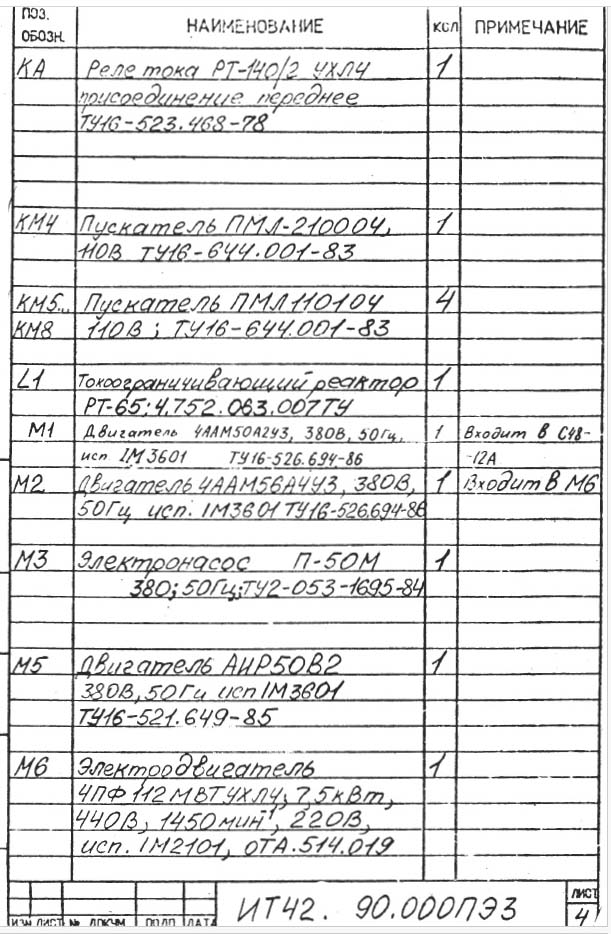 ПОЗ. ОБОЗН. НАИМЕНОВАНИЕ КОЛ ПРИМЕЧАНИЕ
КА Реле тока РТ-140/2 УХЛ4 1
присоединение переднее
ТУ16-523.468-78
КМ4 Пускатель ПМЛ-210004, 1
110В ТУ16-644.001-83
КМ5... Пускатель ПМЛ110104 4
КМ8 110В; ТУ16-644.001-83
L1 Токоограничивающий реактор 1
РТ-65; 4.752.063.007ТУ
М1 Двигатель 4ААМ50А2У3, 380В, 50Гц, 1 Входит в С48-
исп 1М3601 ТУ16-526.694-86 -12А
М2 Двигатель 4ААМ56А4У3, 380В, 1 Входит в М6
50Гц исп. 1М3601 ТУ16-526.694-86
М3 Электронасос П-50М 1
380; 50Гц; ТУ2-053-1695-84
М5 Двигатель АИР50В2 1
380В, 50Гц исп 1М3601
ТУ16-521.649-85
М6 Электродвигатель 1
4ПФ112МВТУХЛ4; 7,5кВт,
440В; 1450мин⁻¹, 220В,
исп. 1М2101, ОТА.514.019
ИЗМ ЛИСТ № ДОКУМ. ПОДП. ДАТА ИТ42. 90.000ПЭ3 ЛИСТ
4